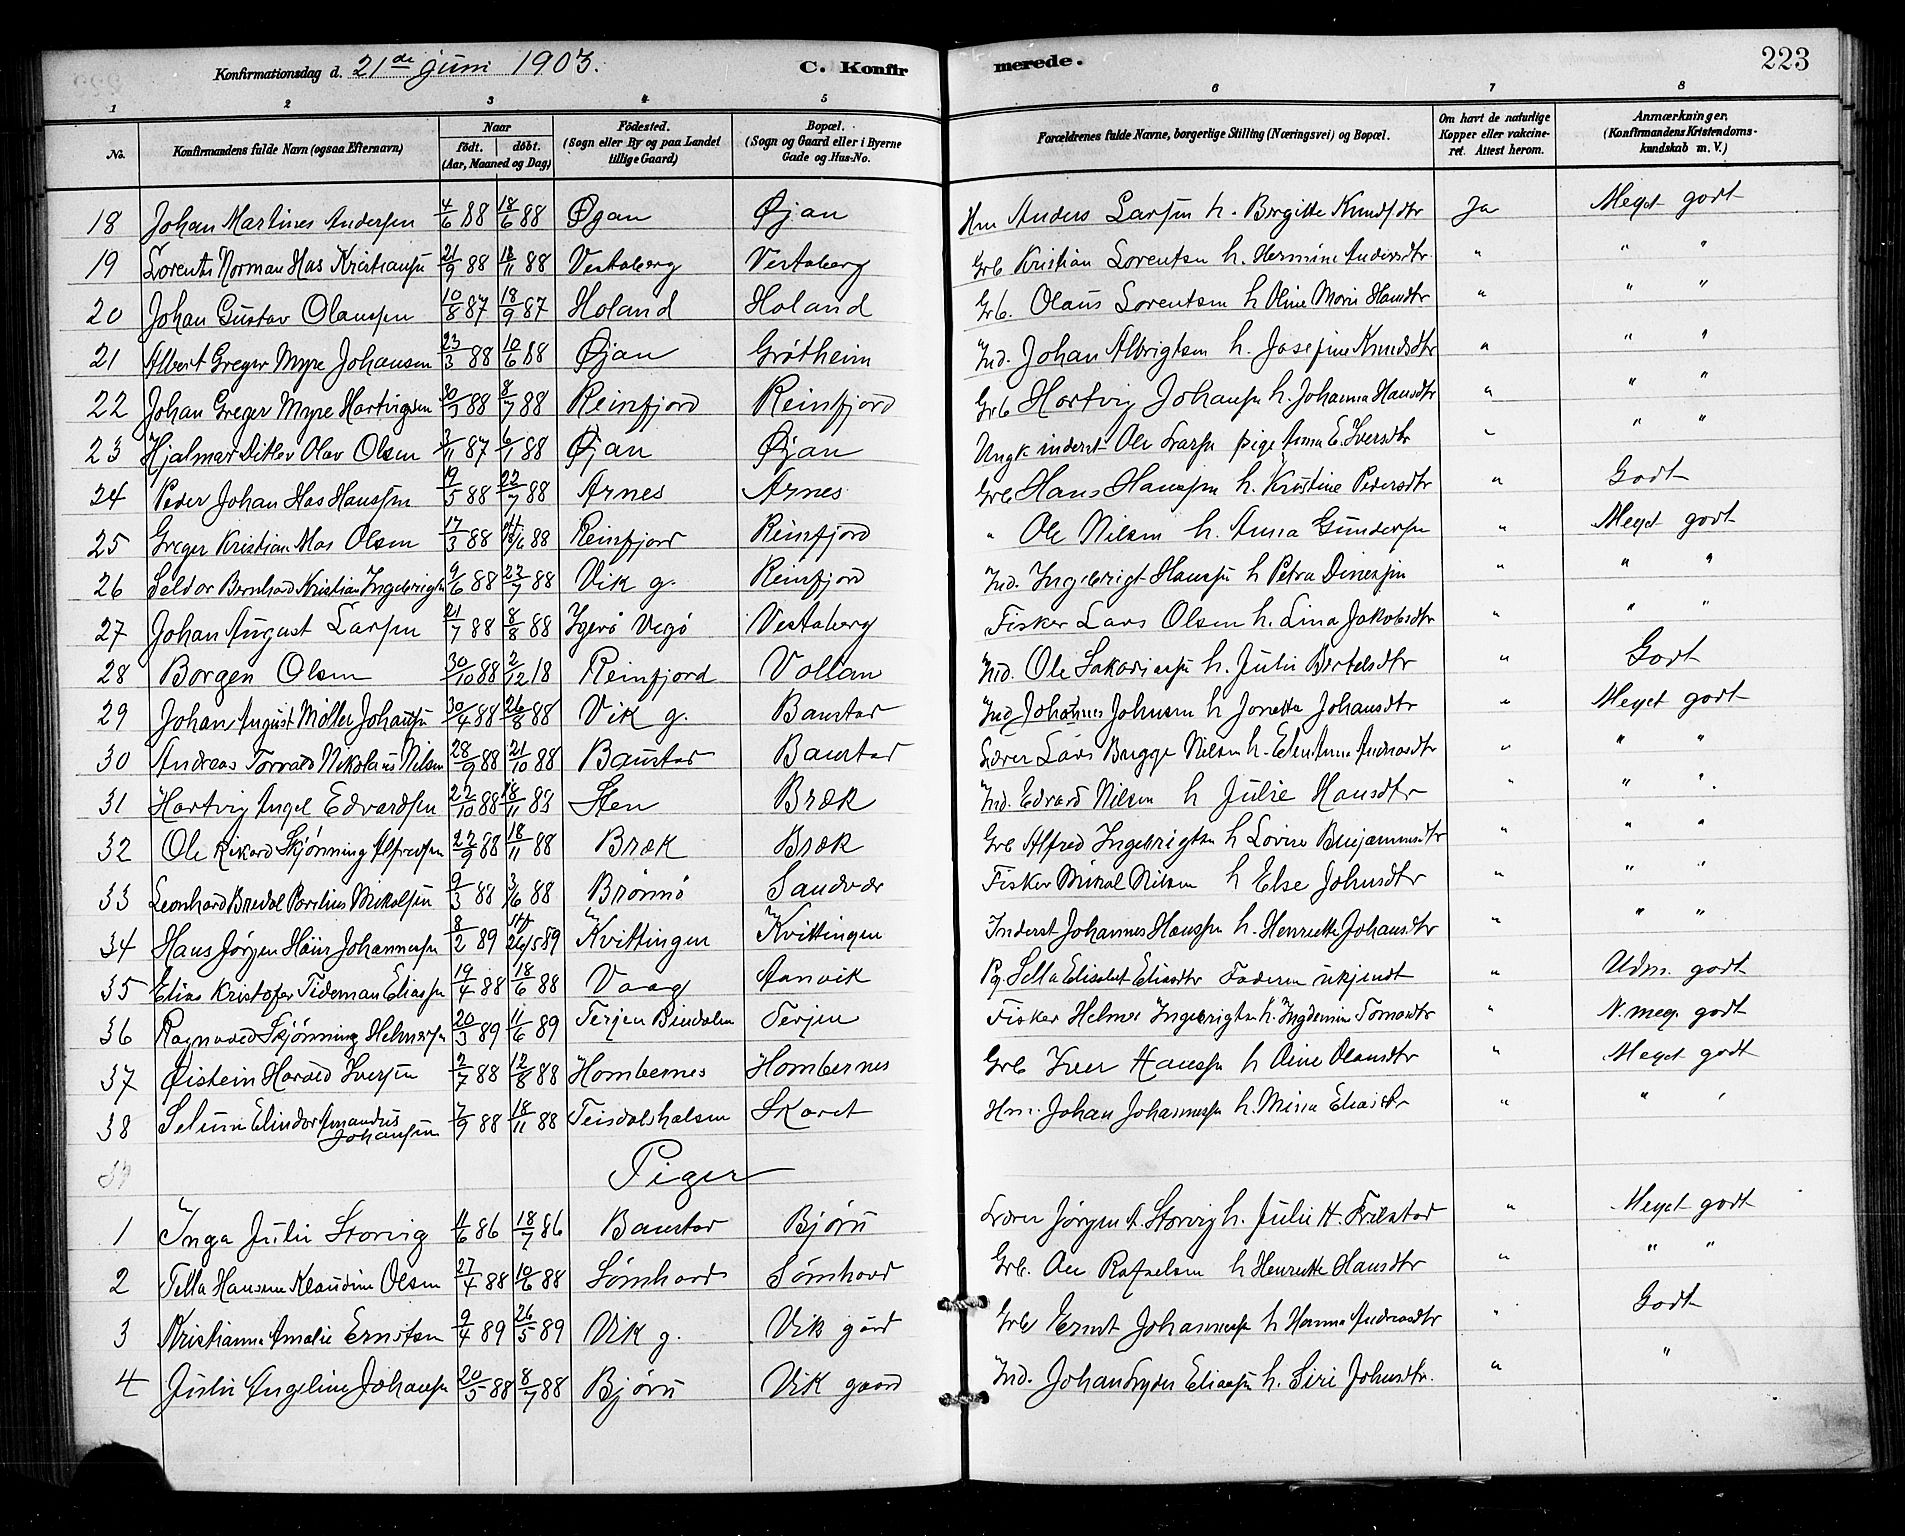 Konfirmationsdag d. 21de juni 1903. C. Konfirmerede. 223
1 2 3 4 5 6 7 8
No. Konfirmandens fulde Navn (ogsaa Efternavn) Naar født. døbt. (Aar, Maaned og Dag) Fødested. (Sogn eller By og paa Landet tillige Gaard) Bopæl. (Sogn og Gaard eller i Byerne Gade og Hus-No. Forældrenes fulde Navne, borgerlige Stilling (Næringsvei) og Bopæl. Om havt de naturlige Kopper eller vakcineret. Attest herom. Anmærkninger. (Konfirmandens Kristendomskundskab m. V.)
18 Johan Martines Andersen 4/6 88 18/6 88 Øyan Øjan Hm Anders Larsen h. Birgitte Knudsdtr Ja Meget godt
19 Lorents Norman Has Kristiansen 21/9 88 18/11 88 Vestaberg Vestaberg Grb Kristian Lorentsen h. Hermine Andersdtr. " " "
20 Johan Gustav Olaussen 10/8 87 18/9 87 Holand Holand Grb. Olaus Lorentsen h Oline Marie Hansdtr " " "
21 Albert Greger Myre Johansen 23/3 88 10/6 88 Øjan Grøtheim Ind. Johan Albrigtsen h. Josefine Knudsdtr " " "
22 Johan Greger Myre Hartvigsen 30/3 88 8/7 88 Reinfjord Reinfjord Grb Hartvig Johansen h. Johanna Hansdtr " " "
23 Hjalmar Ditlev Olav Olsen 3/11 87 6/1 88 Øjan Øjan Ungk inderst Ole Larsen pige Anna E. Iversdtr " " "
24 Peder Johan Has Hanssen 19/5 88 22/7 88 Arnes Arnes Grb Hans Hanssen h. Kristine Pedersdtr " Godt
25 Greger Kristian Mos Olsen 17/3 88 /6 88 Reinfjord Reinfjord " Ole Nilsen h. Anna Gundersen " Meget godt
26 Seldor Bernhard Kristian Ingebrigtsen 9/6 88 22/7 88 Vik g. Reinfjord Ind. Ingebrigt Hanssen h Petra Dinessen " " "
27 Johan August Larsen 21/7 88 8/8 88 Igerø Vegø Vestaberg Fisker Lars Olsen h. Lina Jakobsdtr " " "
28 Borgen Olsen 30/10 88 2/12 18 Reinfjord Vollan Ind. Ole Sakariassen h. Julie Bertelsdtr " Godt
29 Johan August Møller Johansen 30/4 88 26/8 88 Vik g. Baustad Ind Johannes Johnsen h Jonetta Johansdtr " Meget godt
30 Andreas Torvald Nikolaus Nilsen 28/9 88 21/10 88 Baustad Baustad Lærer Lars Bugge Nilsen h. Elen Anna Andreasdtr " " "
31 Hartvig Angel Edvardsen 22/10 88 18/11 88 Sten Bræk Ind. Edvard Nilsen h Julie Hansdtr " " "
32 Ole Rikard Skjønning Alfredsen 22/9 88 18/11 88 Bræk Bræk Grb Alfred Ingebrigtsen h Lovise Benjaminsdtr " " "
33 Leonhard Bredal Parelius Mikalsen 9/3 88 3/6 88 Brønnø Sandvær Fisker Mikal Nilsen h Else Johnsdtr " " "
34 Hans Jørgen Johannessen 8/2 89 26/5 89 Kvittingen Kvittingen Inderst Johannes Hanssen h. Henrette Johansdtr " " "
35 Elias Kristofer Tideman Eliassen 19/4 88 18/6 88 Vaag Aanvik Pg Sella Elisabet Eliasdtr Faderen ukjendt " Udm. godt
36 Ragnvald Skjønning Helmersen 20/3 89 11/6 89 Terjen Bindalen Terjen Fisker Helmer Ingebrigtsen h. Tomasdtr " N. meg. godt
37 Øistein Harald Iversen 2/7 88 12/8 88 Hombernes Hombernes Grb Iver Hanssen h Oline Olausdtr " Meget godt
38 Selim Elindor Amandus Johansen 7/9 88 18/11 88 Teisdalshalsen Skaret Hm. Johan Johannessen h. Mina Eliasdtr " " "
39 Piger
1 Inga Julie Storvig 4/6 86 18/7 86 Baustad Bjørn Lærer Jørgen A. Storvig h. Julie H. " Meget godt
2 Tella Hansine Klaudine Olsen 27/4 88 10/6 88 Sømhovd Sømhovd Grb. Ole Rafaelsen h Henrette Hansdtr " " "
3 Kristianna Amalie Ernsten 9/4 89 26/5 89 Vik g. Vik gård Grb Ernst Johannessen h Hanna Andreasdtr " Godt
4 Julie Angeline Johansen 20/5 88 8/7 88 Bjørn Vik gaard Ind. Johan Eliassen h. Siri Johnsdtr. " "